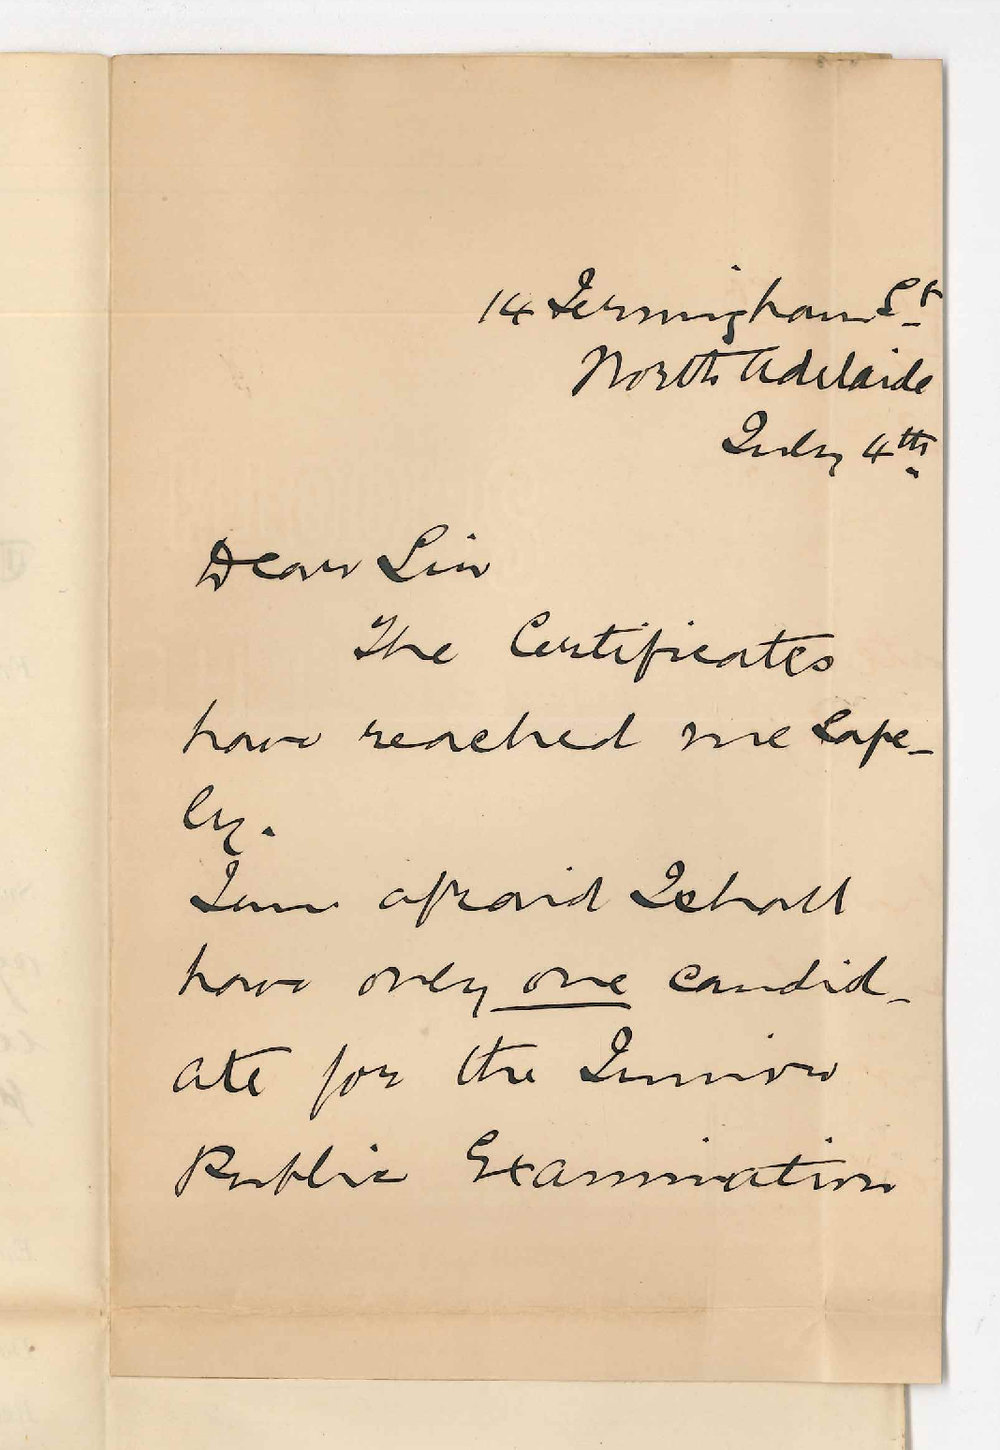 14 Jermingham St
North Adelaide
July 4th
Dear Sir
The Certificates
have reached me safe-
ly.
I am afraid I shall
have only one candid-
ate for the Junior
Public Examination